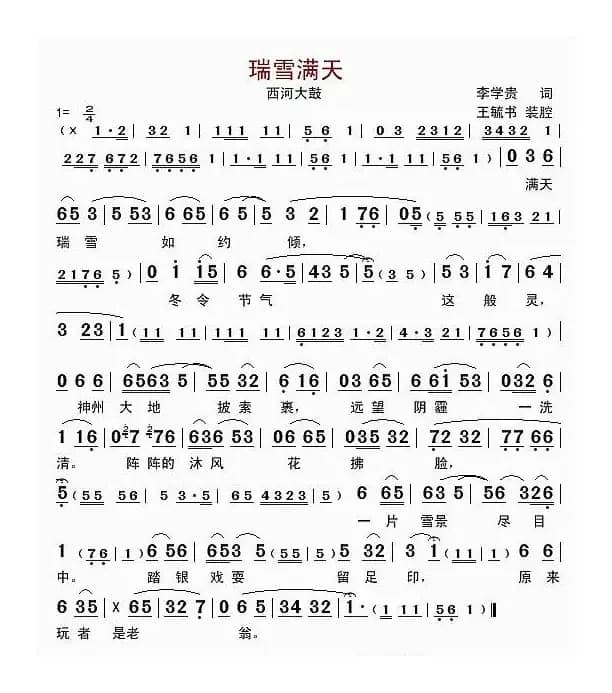 瑞雪满天
西河大鼓
李学贵 词
1= 2/4
王毓书 装腔
( x | 1·2 | 32 1 | 111 11 | 5 6 1 | 0 3 2312 | 3432 1 |
227 672 | 7656 1 | 1·1 11 | 56 1 | 1·1 11 | 56 1 ) | 0 3 6 |
满天
65 3 | 5 53 | 6 65 | 6 5 | 5 3 2 | 1 76 | 05 ( 5 55 | 163 21 |
瑞 雪 如 约 倾,
2176 5 ) | 0 1 15 | 6 6·5 | 43 5 | 5 ( 3 5 ) | 5 3 | 1 7 | 6 4 |
冬 令 节 气 这 般 灵,
3 23 | 1 ( 11 11 | 111 11 | 6123 1·2 | 4·3 21 | 7656 1 ) |
0 6 6 | 6563 5 | 55 32 | 6 16 | 03 65 | 6 61 53 | 032 6 |
神州 大 地 披 素 裹, 远 望 阴 霾 一 洗
1 16 | 07 76 | 636 53 | 06 65 | 035 32 | 72 32 | 77 66 |
清。 阵 阵的 沐 风 花 拂 脸,
5 ( 55 55 | 56 5 3·5 | 65 4323 5 ) | 6 65 | 63 5 | 56 326 |
一 片 雪景 尽 目
1 ( 76 | 1 ) 6 56 | 653 5 ( 55 | 5 ) 5 32 | 3 1 ( 11 | 1 ) 6 6 |
中。 踏 银 戏 耍 留 足 印, 原 来
6 35 | x 65 | 32 7 | 0 65 | 34 32 | 1· ( 1 11 | 56 1 ) ‖
玩 者 是老 翁。